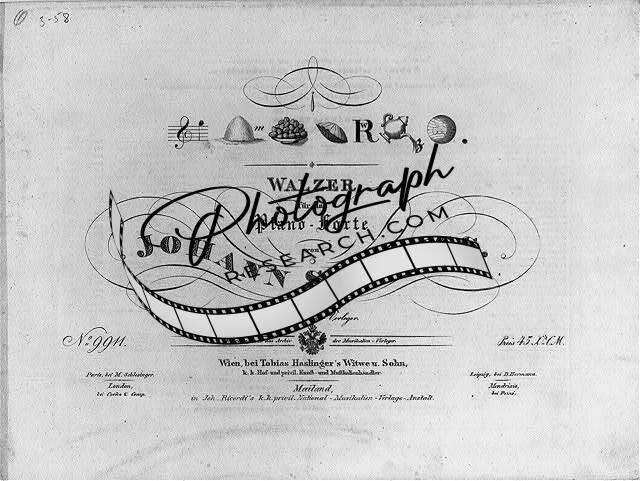 3-58
m R W z .
WALZER
für das
Piano-Forte
von
JOHANN S
Photograph
RESEARCH.COM
Verleger.
das Archiv der Musikalien-Verleger.
No. 9911. Preis 45.Xr.C.M.
Wien, bei Tobias Haslinger's Witwe u. Sohn,
k. k. Hof- und privil. Kunst- und Musikalienhändler.
Paris, bei M. Schlesinger.
London,
bei Cocks & Comp.
Leipzig, bei B. Hermann.
Mendrisio,
bei Pozzi.
Mailand,
in Joh. Ricordi's k.k. privil. National-Musikalien-Verlags-Anstalt.